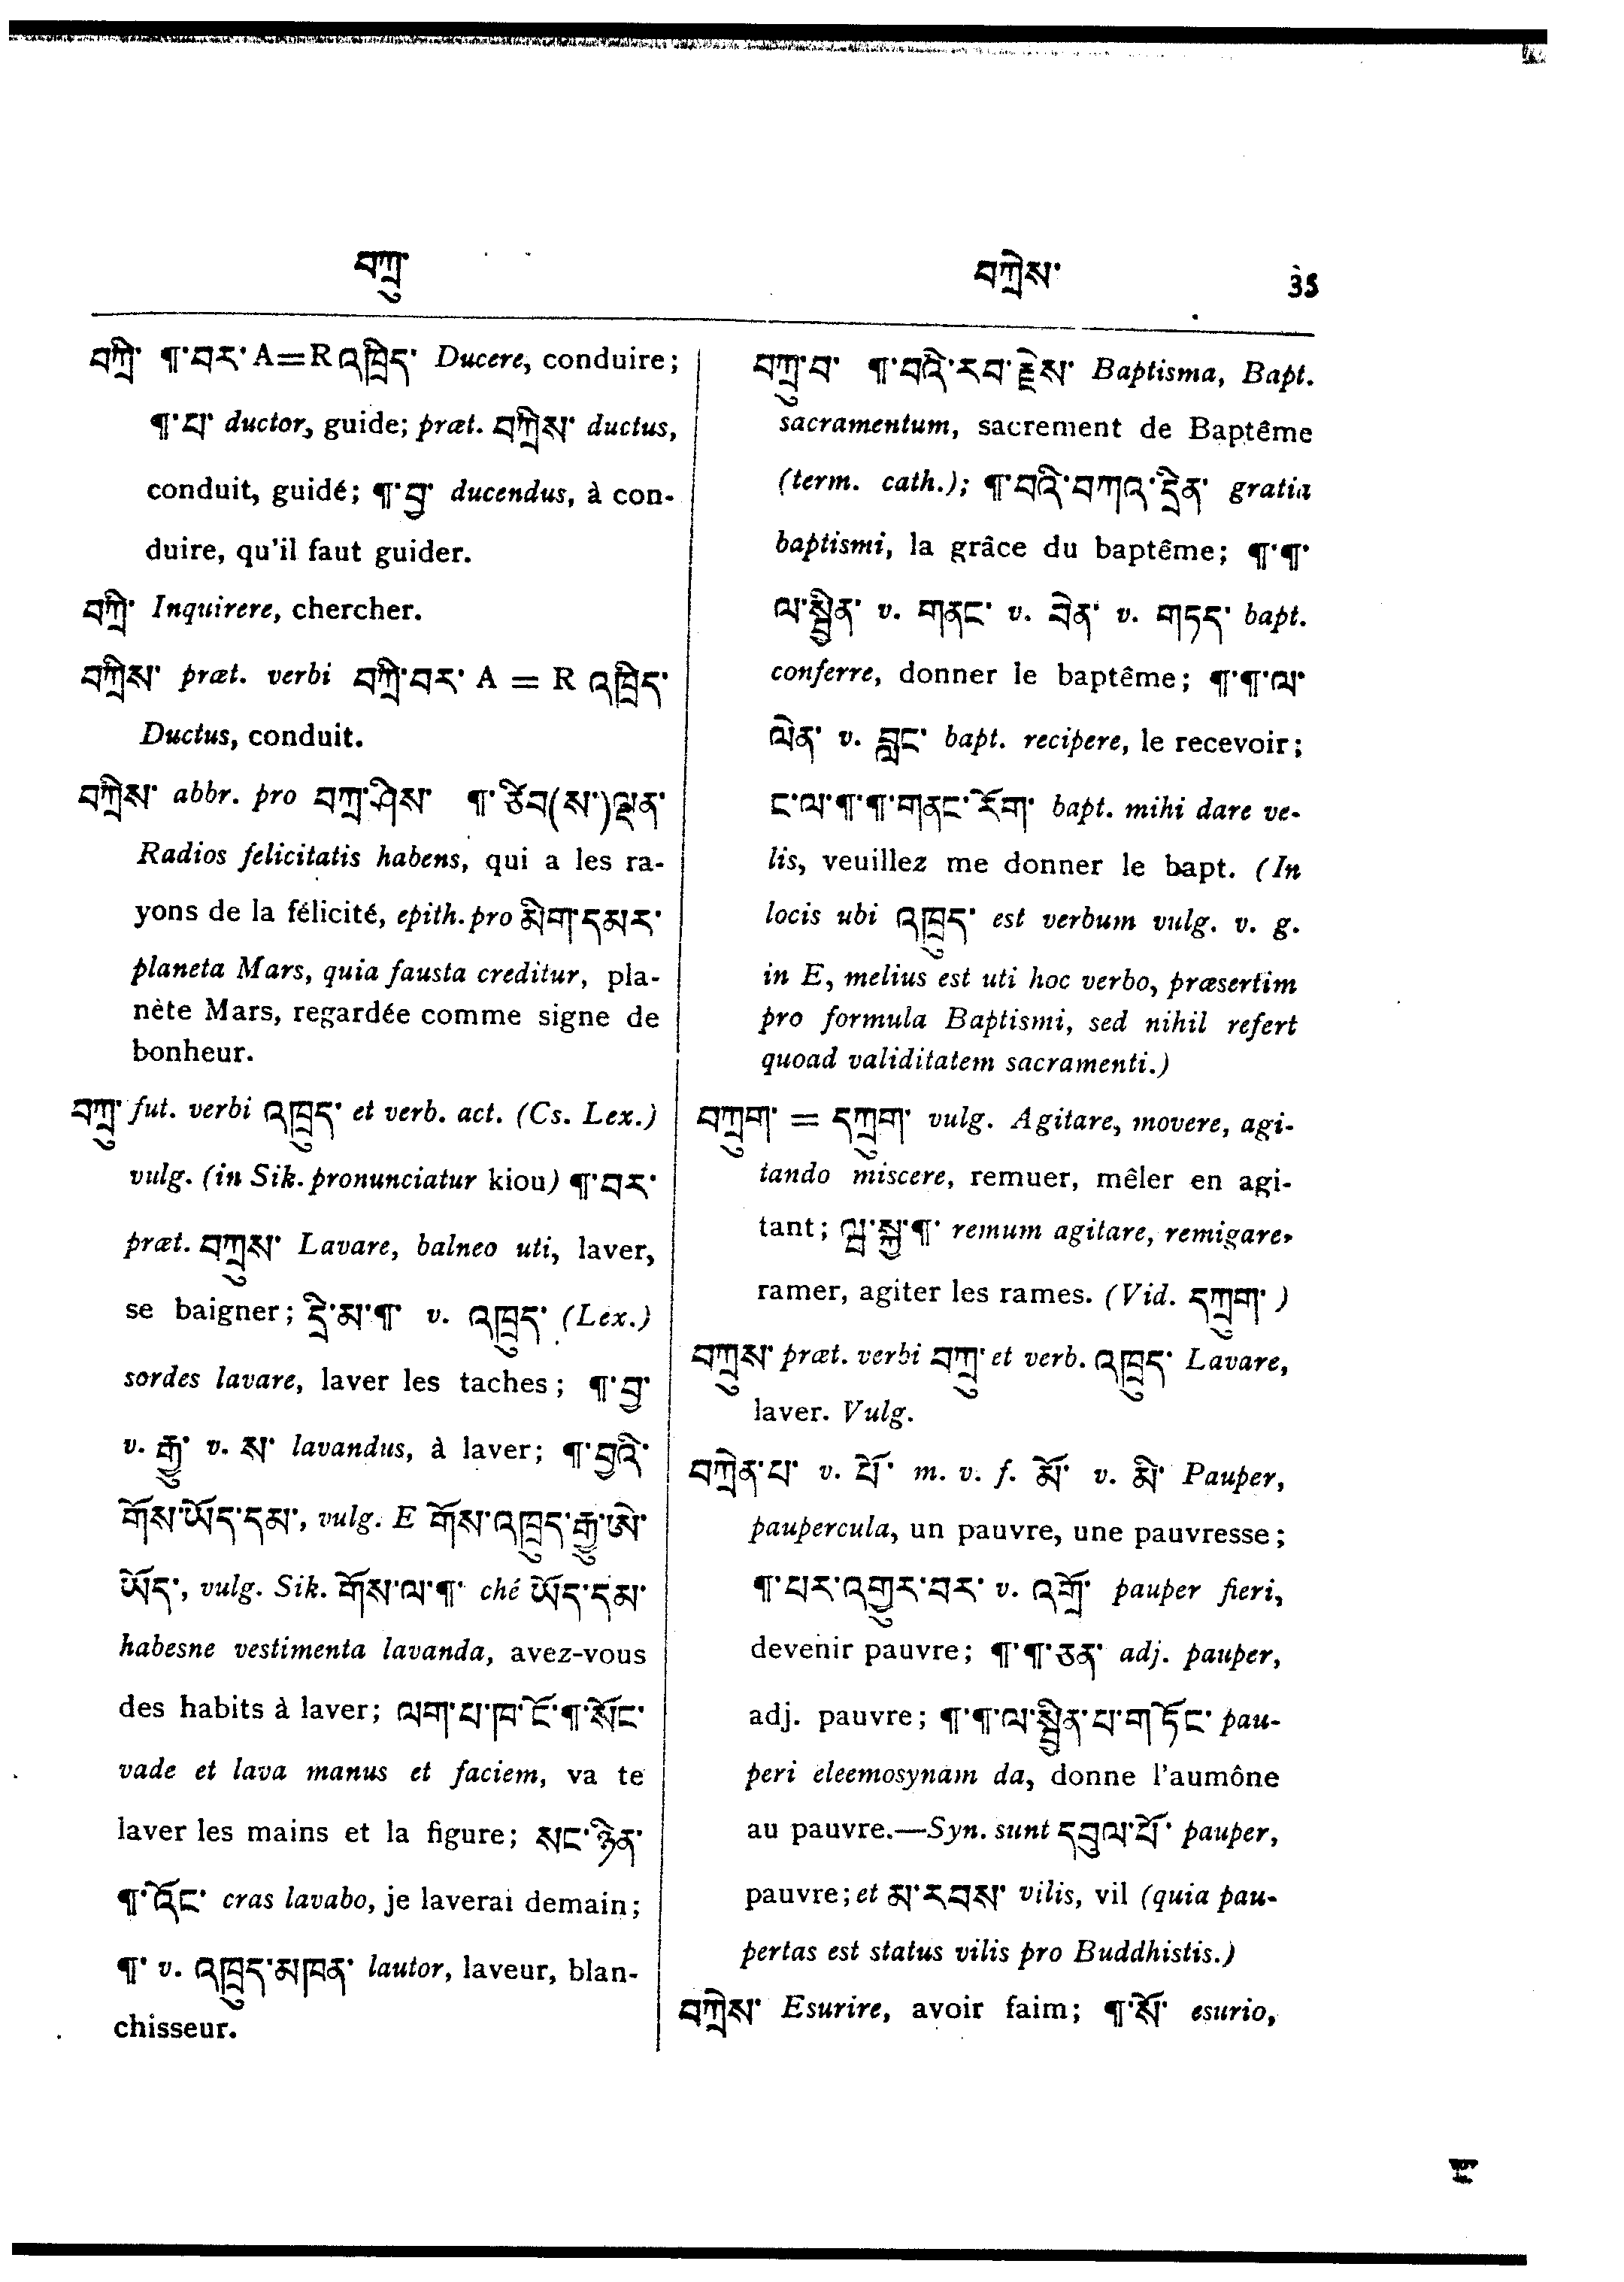 བཀྲུ་ བཀྲེས་ 35
བཀྲི་ ¶་བར་ A=R འཁྲིད་ Ducere, conduire;
¶་པ་ ductor, guide; præt. བཀྲིས་ ductus,
conduit, guidé; ¶་བྱ་ ducendus, à con-
duire, qu'il faut guider.
བཀྲི་ Inquirere, chercher.
བཀྲིས་ præt. verbi བཀྲི་བར་ A = R འཁྲིད་
Ductus, conduit.
བཀྲིས་ abbr. pro བཀྲ་ཤིས་ ¶་ཙིབ(ས་)ལྡན་
Radios felicitatis habens, qui a les ra-
yons de la félicité, epith. pro མིག་དམར་
planeta Mars, quia fausta creditur, pla-
nète Mars, regardée comme signe de
bonheur.
བཀྲུ་ fut. verbi འཁྲུད་ et verb. act. (Cs. Lex.)
vulg. (in Sik. pronunciatur kiou) ¶་བར་
præt. བཀྲུས་ Lavare, balneo uti, laver,
se baigner; དྲི་མ་¶་ v. འཁྲུད་ (Lex.)
sordes lavare, laver les taches; ¶་བྱ་
v. རྒྱུ་ v. ས་ lavandus, à laver; ¶་བྱའི་
གོས་ཡོད་དམ་, vulg. E གོས་འཁྲུད་རྒྱུ་ཨེ་
ཡོད་, vulg. Sik. གོས་ལ་¶་ ché ཡོད་དམ་
habesne vestimenta lavanda, avez-vous
des habits à laver; ལག་པ་ཁ་ངོ་¶་སོང་
vade et lava manus et faciem, va te
laver les mains et la figure; སང་ཉིན་
¶་འོང་ cras lavabo, je laverai demain;
¶་ v. འཁྲུད་མཁན་ lautor, laveur, blan-
chisseur.
བཀྲུ་བ་ ¶་བའི་རབ་རྗེས་ Baptisma, Bapt.
sacramentum, sacrement de Baptême
(term. cath.); ¶་བའི་བཀའ་དྲིན་ gratia
baptismi, la grâce du baptême; ¶་¶་
ལ་སྦྱིན་ v. གནང་ v. བིན་ v. གཏད་ bapt.
conferre, donner le baptême; ¶་¶་ལ་
ལེན་ v. བླང་ bapt. recipere, le recevoir;
ང་ལ་¶་¶་གནང་རོག་ bapt. mihi dare ve-
lis, veuillez me donner le bapt. (In
locis ubi འཁྲུད་ est verbum vulg. v. g.
in E, melius est uti hoc verbo, præsertim
pro formula Baptismi, sed nihil refert
quoad validitatem sacramenti.)
བཀྲུག་ = དཀྲུག་ vulg. Agitare, movere, agi-
tando miscere, remuer, mêler en agi-
tant; སྐྱ་¶་ remum agitare, remigare,
ramer, agiter les rames. (Vid. དཀྲུག་ )
བཀྲུས་ præt. verbi བཀྲུ་ et verb. འཁྲུད་ Lavare,
laver. Vulg.
བཀྲེན་པ་ v. པོ་ m. v. f. མོ་ v. མི་ Pauper,
paupercula, un pauvre, une pauvresse;
¶་པར་འགྱུར་བར་ v. འགྲོ་ pauper fieri,
devenir pauvre; ¶་¶་ཅན་ adj. pauper,
adj. pauvre; ¶་¶་ལ་སྦྱིན་པ་གཏོང་ pau-
peri eleemosynam da, donne l'aumône
au pauvre.—Syn. sunt དབུལ་པོ་ pauper,
pauvre; et མ་རབས་ vilis, vil (quia pau-
pertas est status vilis pro Buddhistis.)
བཀྲེས་ Esurire, avoir faim; ¶་སོ་ esurio,